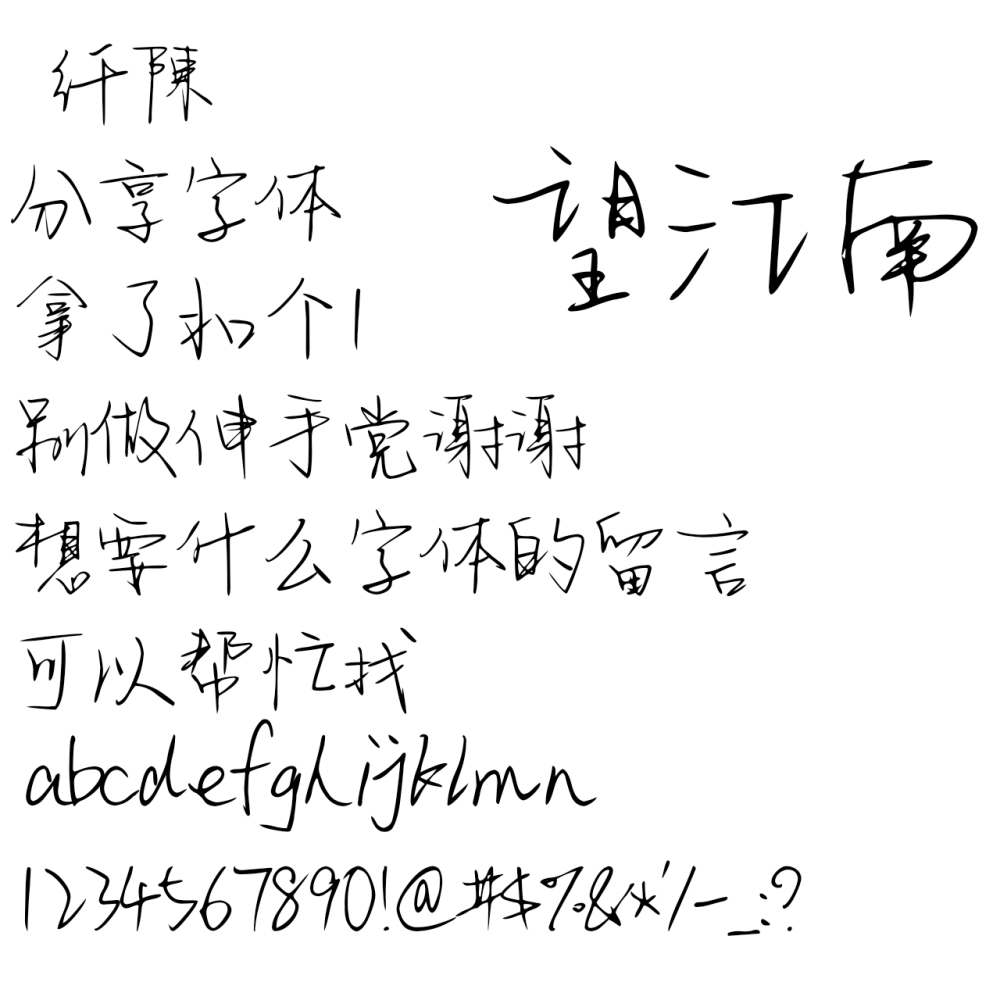 纤陳
望江南
分享字体
拿了扣个1
别做伸手党谢谢
想要什么字体的留言
可以帮忙找
abcdefghijklmn
1234567890!@#$%&*'/-_:?